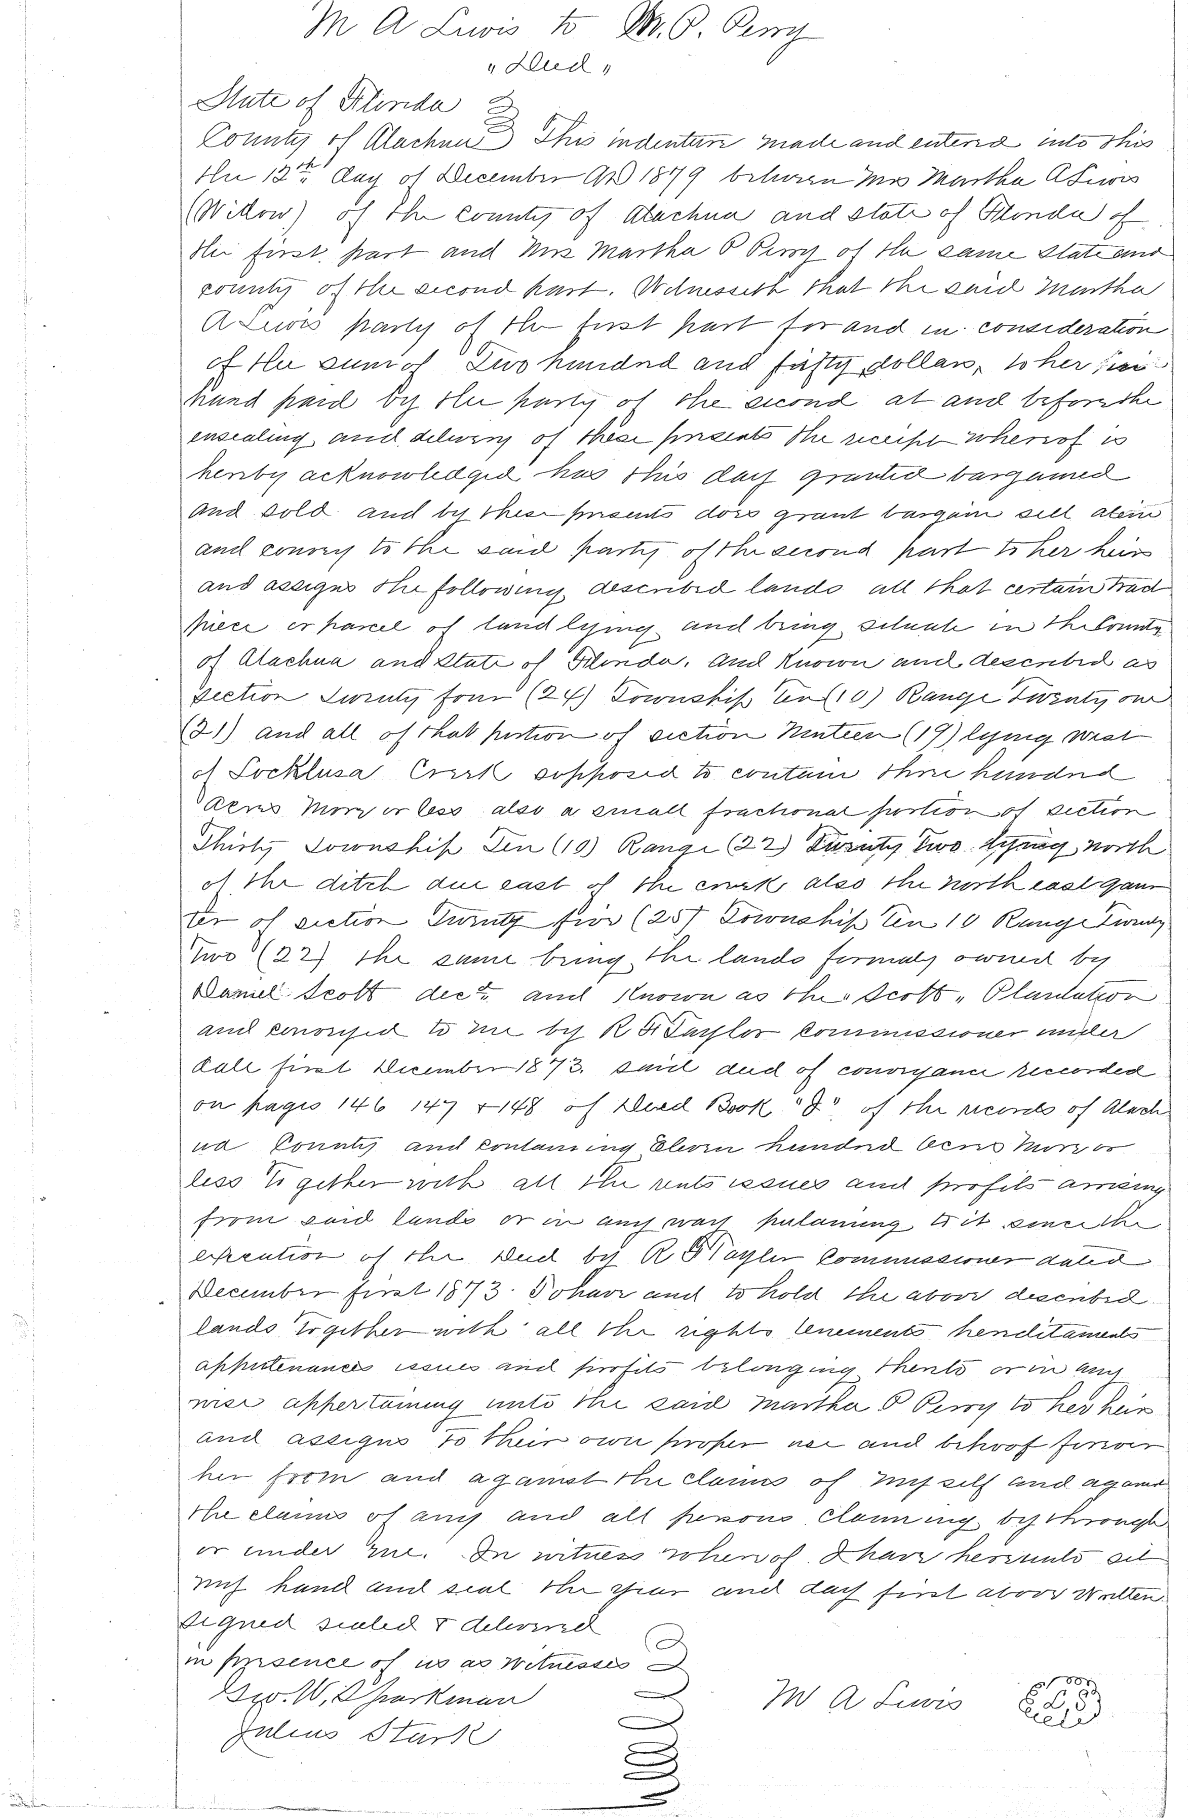 M A Lewis to M. P. Perry
"Deed"
State of Florida
County of Alachua This indenture made and entered into this
the 12th day of December AD 1879 between Mrs Martha A Lewis
(Widow) of the County of Alachua and state of Florida of
the first part and Mrs Martha P Perry of the same State and
county of the second part. Witnesseth that the said Martha
A Lewis party of the first part for and in consideration
of the sum of Two hundred and fifty dollars, to her in
hand paid by the party of the second at and before the
ensealing and delivery of these presents the receipt whereof is
hereby acknowledged has this day granted bargained
and sold and by these presents does grant bargain sell alein
and convey to the said party of the second part to her heirs
and assigns the following described lands all that certain tract
piece or parcel of land lying and being situate in the County
of Alachua and State of Florida. and Known and described as
section Twenty four (24) Township Ten (10) Range Twenty one
(21) and all of that portion of section Ninteen (19) lying West
of Locklusa Creek supposed to contain three hundred
acres More or less also a small fractional portion of section
Thirty Township Ten (10) Range (22) Twenty Two lying north
of the ditch due east of the creek also the north east quar
ter of section Twenty five (25) Township Ten 10 Range Twenty
Two (22) the same being the lands formaly owned by
Daniel Scott decd and Known as the "Scott" Plantation
and conveyed to me by R Taylor Commissioner under
date first December 1873. said deed of conveyance reccorded
on pages 146 147 + 148 of Deed Book "J" of the records of Alach
ua County and containing Eleven hundred acres More or
less Together with all the rents issues and profits arrising
from said lands or in any way pertaining to it since the
execution of the Deed by R Tayler Commissioner dated
December first 1873. To have and to hold the above described
lands together with all the rights tenements herditaments
appurtenances issues and profits belonging thereto or in any
wise appertaining unto the said Martha P Perry to her heirs
and assigns to their own proper use and behoof forever
her from and against the claims of myself and against
the claims of any and all persons claiming by through
or under me. In witness whereof I have hereunto set
my hand and seal the year and day first above Written
Signed sealed & delivered
in presence of us as Witnesses
Geo. W. Sparkman M A Lewis
Julius Stark